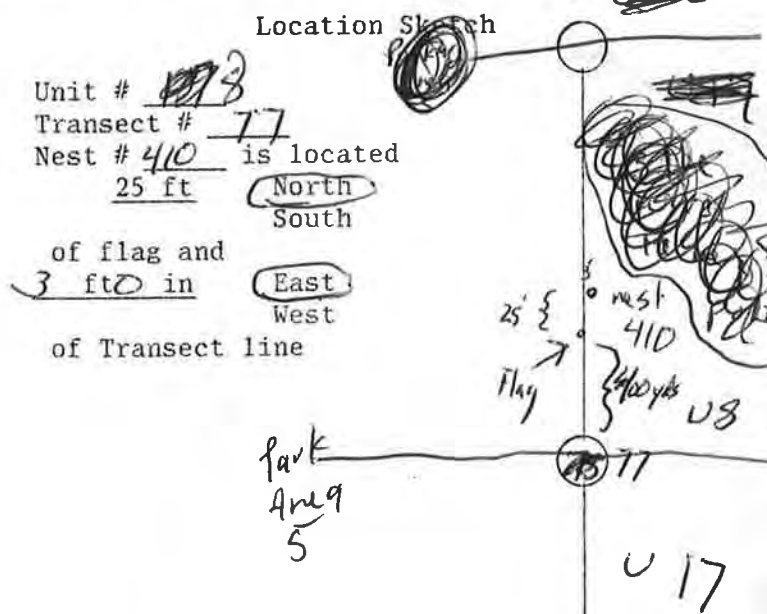 Location Sketch
Unit # 8
Transect # 77
Nest # 410 is located
25 ft North
South
of flag and
3 ft 0 in East
West
of Transect line
3'
nest
410
25' {
Flag
400 yds
U8
Park
Area
5
77
U 17